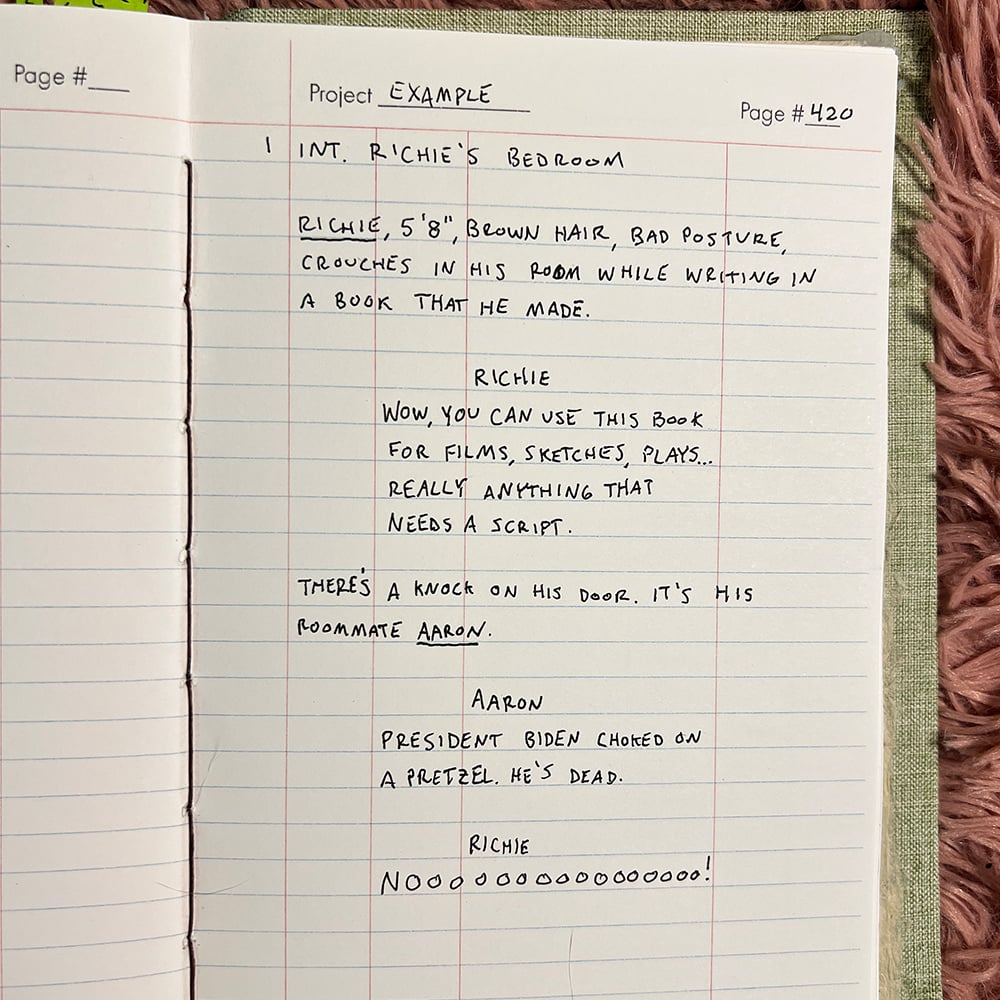 Page #
Project EXAMPLE
Page # 420
1 INT. RICHIE'S BEDROOM
RICHIE, 5'8", BROWN HAIR, BAD POSTURE,
CROUCHES IN HIS ROOM WHILE WRITING IN
A BOOK THAT HE MADE.
RICHIE
WOW, YOU CAN USE THIS BOOK
FOR FILMS, SKETCHES, PLAYS...
REALLY ANYTHING THAT
NEEDS A SCRIPT.
THERE'S A KNOCK ON HIS DOOR. IT'S HIS
ROOMMATE AARON.
AARON
PRESIDENT BIDEN CHOKED ON
A PRETZEL. HE'S DEAD.
RICHIE
NOOOOOOOOOOOOOOOO!